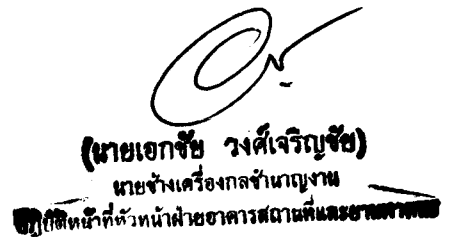 (นายเอกชัย วงศ์เจริญชัย)
นายช่างเครื่องกลชำนาญงาน
ปฏิบัติหน้าที่หัวหน้าฝ่ายอาคารสถานที่และยานพาหนะ